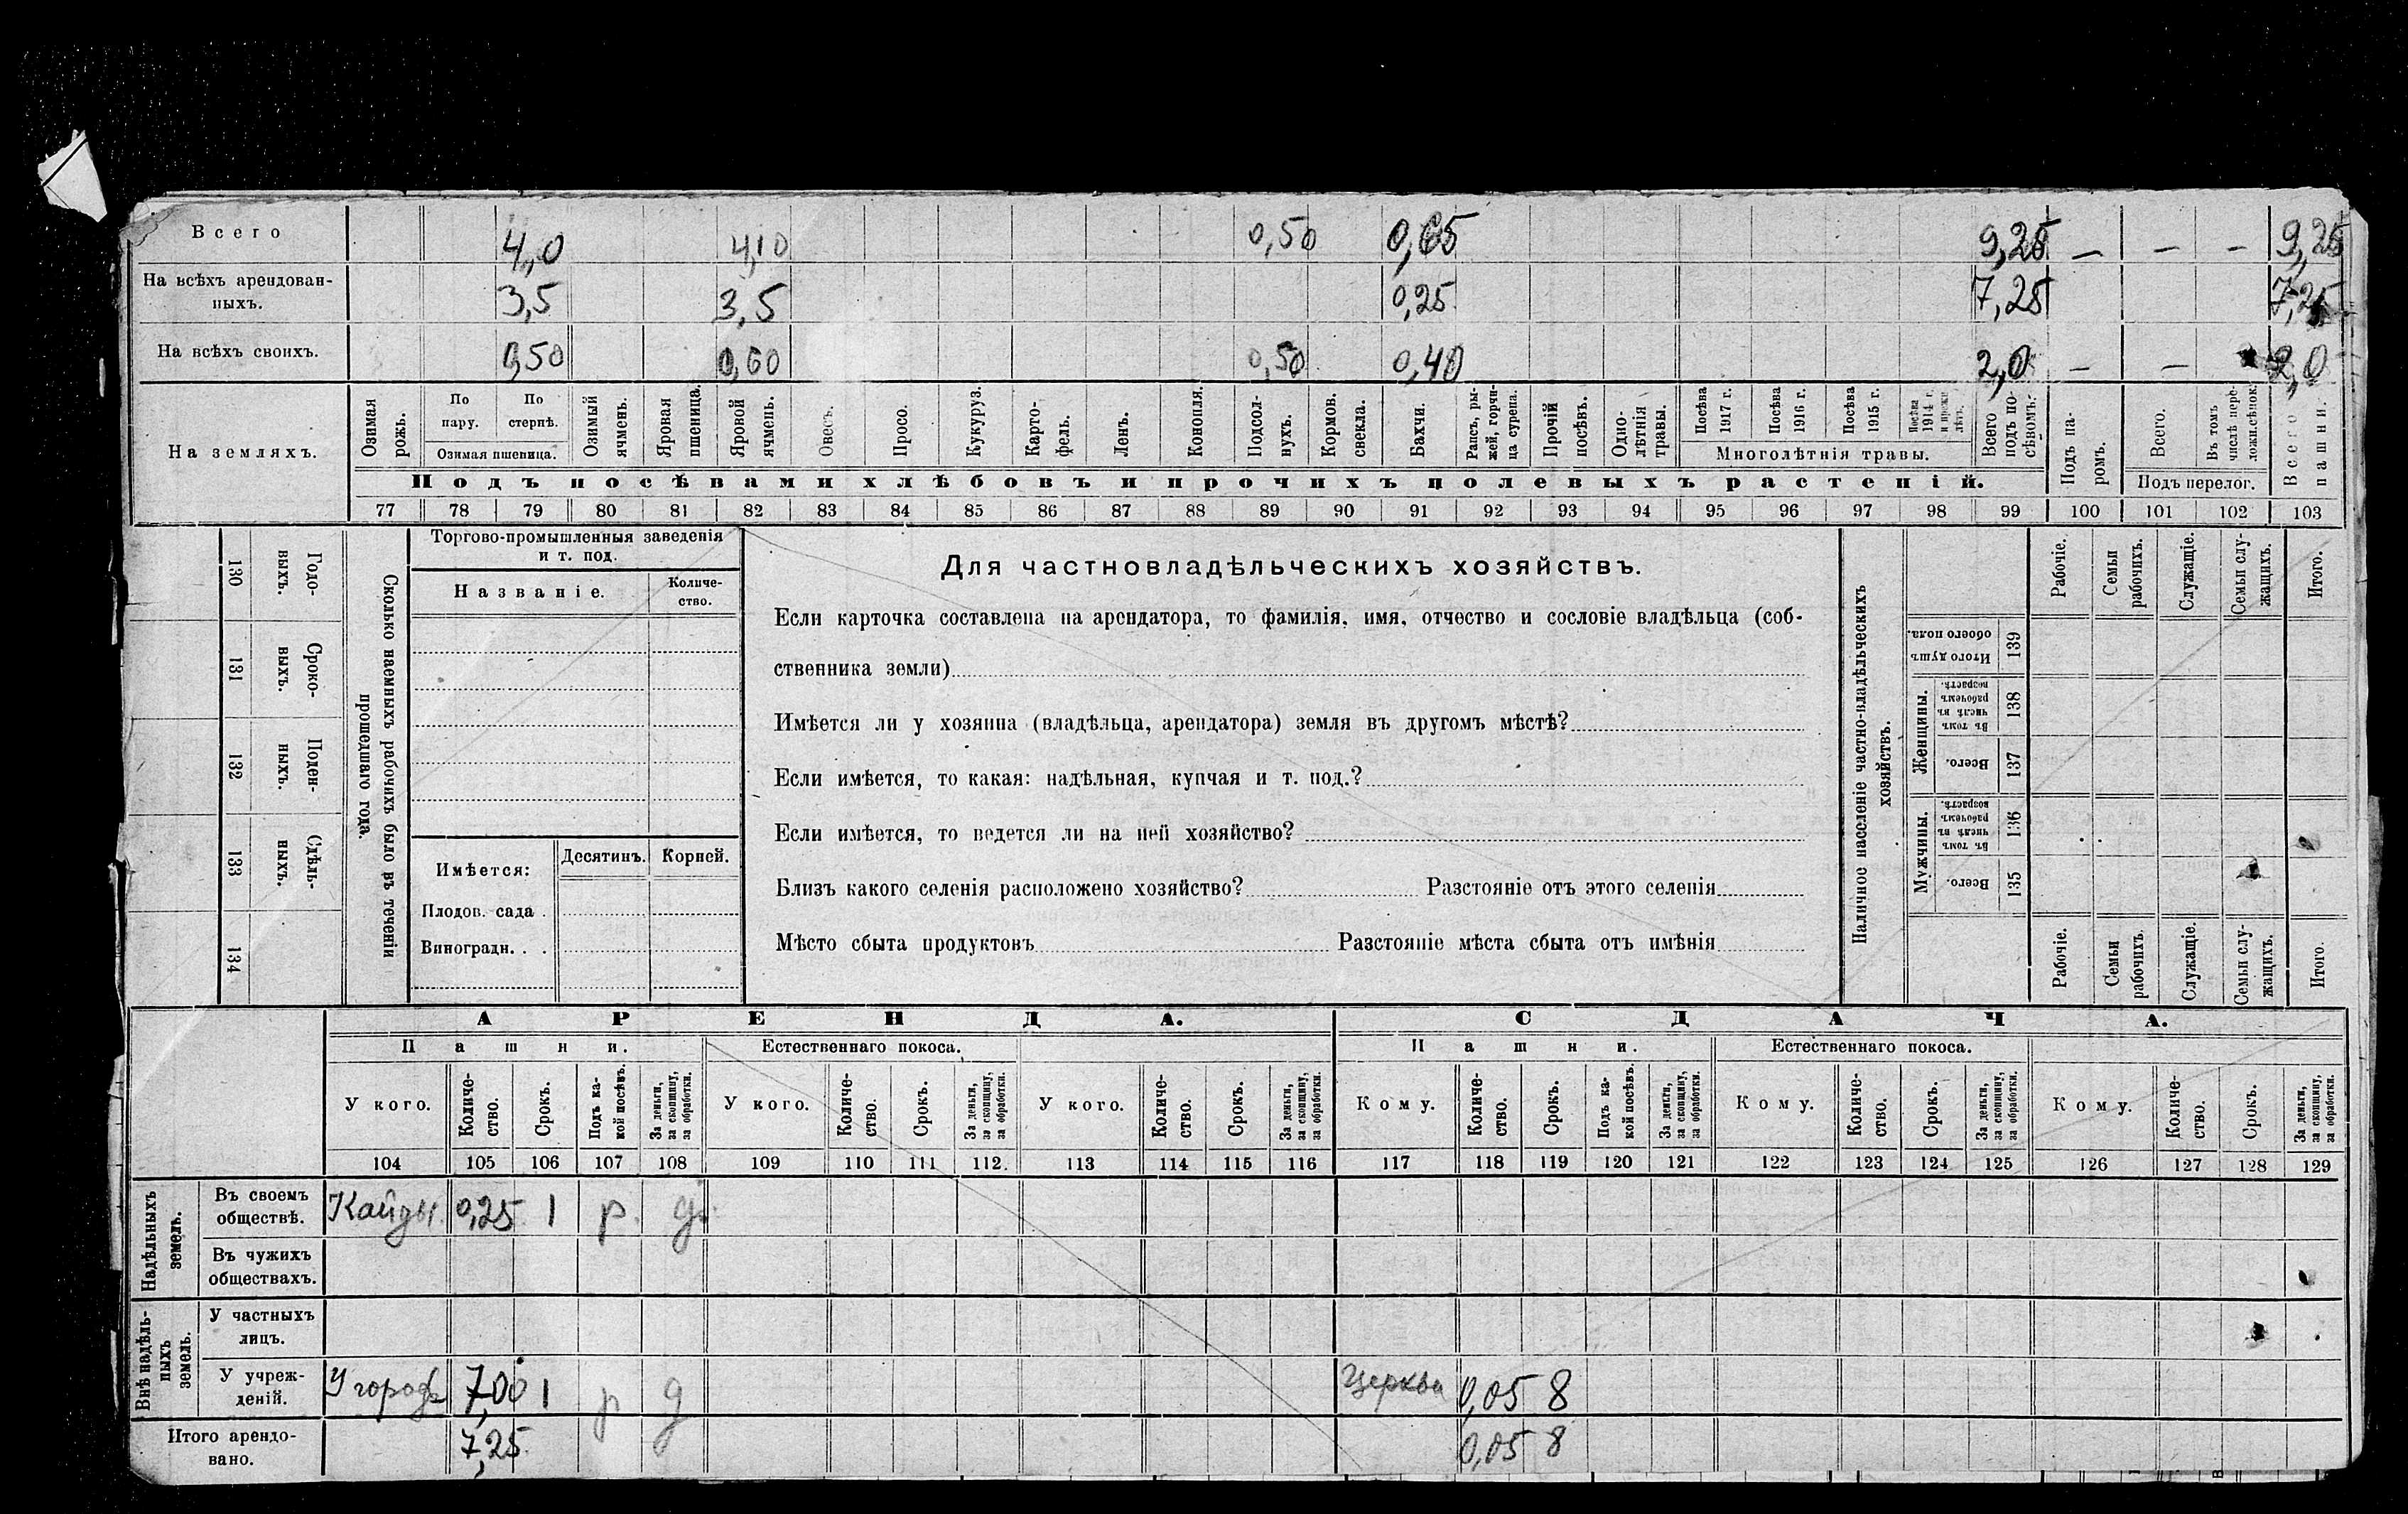 Всего 4,0 4,10 0,50 0,65 9,25 — — — 9,25
На всѣхъ арендован-
ныхъ. 3,5 3,5 0,25 7,25 7,25
На всѣхъ своихъ. 0,50 0,60 0,50 0,40 2,0 — — 2,0
На земляхъ.
Озимая рожь.
По пару.
По стернѣ.
Озимая пшеница.
Озимый ячмень.
Яровая пшеница.
Яровой ячмень.
Овесъ.
Просо.
Кукуруз.
Карто-
фель.
Ленъ.
Конопля.
Подсол-
нухъ.
Кормов. свекла.
Бахчи.
Рапсъ, ры-
жей, горчи-
ца сурепа.
Прочій посѣвъ.
Одно-
лѣтнія травы.
Посѣва 1917 г.
Посѣва 1916 г.
Посѣва 1915 г.
Посѣва 1914 г. и прежн. лѣтъ.
Многолѣтнія травы.
Всего подъ по-
сѣвомъ.
Подъ посѣвами хлѣбовъ и прочихъ полевыхъ растеній.
Подъ па-
ромъ.
Всего.
Въ томъ числѣ
Подъ перелог.
Всего пашни.
77 78 79 80 81 82 83 84 85 86 87 88 89 90 91 92 93 94 95 96 97 98 99 100 101 102 103
130 Годо-
выхъ.
131 Сроко-
выхъ.
132 Поден-
ныхъ.
133 Сдѣль-
ныхъ.
134
Сколько наемныхъ рабочихъ было въ теченіи
прошедшаго года.
Торгово-промышленныя заведенія
и т. под.
Названіе.
Количе-
ство.
Имѣется: Десятинъ. Корней.
Плодов. сада .
Виноградн. . .
Для частновладѣльческихъ хозяйствъ.
Если карточка составлена на арендатора, то фамилія, имя, отчество и сословіе владѣльца (соб-
ственника земли)
Имѣется ли у хозяина (владѣльца, арендатора) земля въ другомъ мѣстѣ?
Если имѣется, то какая: надѣльная, купчая и т. под.?
Если имѣется, то ведется ли на ней хозяйство?
Близъ какого селенія расположено хозяйство? Разстояніе отъ этого селенія
Мѣсто сбыта продуктовъ Разстояніе мѣста сбыта отъ имѣнія
Наличное населеніе частно-владѣльческихъ
хозяйствъ.
Рабочіе.
Семьи рабочихъ.
Служащіе.
Семьи слу-
жащихъ.
Итого.
Итого душъ обоего пола. 139
Женщины.
Въ томъ числѣ въ рабочемъ возрастѣ. 138
Всего. 137
Мужчины.
Въ томъ числѣ въ рабочемъ возрастѣ. 136
Всего. 135
Рабочіе.
Семьи рабочихъ.
Служащіе.
Семьи слу-
жащихъ.
Итого.
АРЕНДА. СДАЧА.
Пашни. Естественнаго покоса. Пашни. Естественнаго покоса.
У кого.
Количе-
ство.
Срокъ.
Подъ ка-
кой посѣвъ.
За деньги, за скопщину, за обработки.
У кого.
Количе-
ство.
Срокъ.
За деньги, за скопщину, за обработки.
У кого.
Количе-
ство.
Срокъ.
За деньги, за скопщину, за обработки.
Кому.
Количе-
ство.
Срокъ.
Подъ ка-
кой посѣвъ.
За деньги, за скопщину, за обработки.
Кому.
Количе-
ство.
Срокъ.
За деньги, за скопщину, за обработки.
Кому.
Количе-
ство.
Срокъ.
За деньги, за скопщину, за обработки.
104 105 106 107 108 109 110 111 112. 113 114 115 116 117 118 119 120 121 122 123 124 125 126 127 128 129
Надѣльныхъ
земель.
Въ своемъ
обществѣ. 0,25 1 р. д.
Въ чужихъ
обществахъ.
Внѣ надѣль-
ныхъ
земель.
У частныхъ
лицъ.
У учреж-
деній. У города 7,00 1 р д Церква 0,05 8
Итого арендо-
вано. 7,25 0,05 8